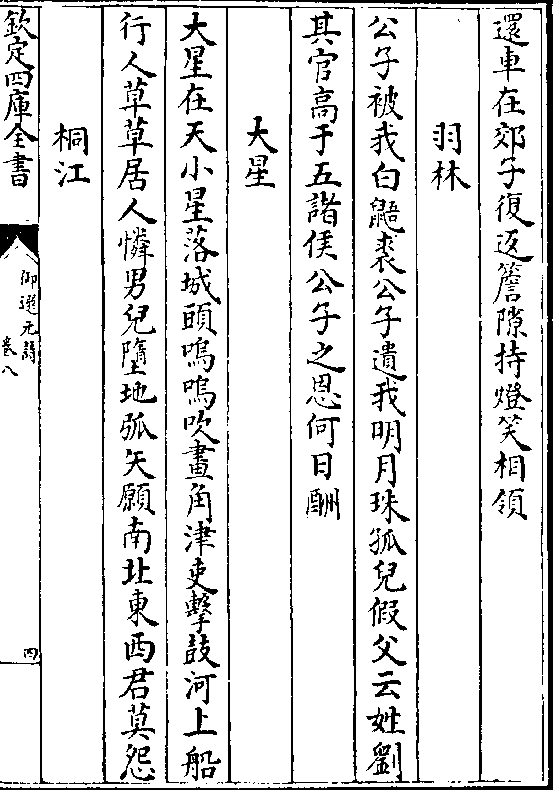 還車在郊子復返簷隙持燈笑相領
羽林
公子被我白鼯裘公子遺我明月珠孤兒假父云姓劉
其官高于五諸侯公子之恩何日酬
大星
大星在天小星落城頭嗚嗚吹畫角津吏擊鼓河上船
行人草草居人憐男兒墮地弧矢願南北東西君莫怨
桐江
欽定四庫全書
御選元詩
卷八
四